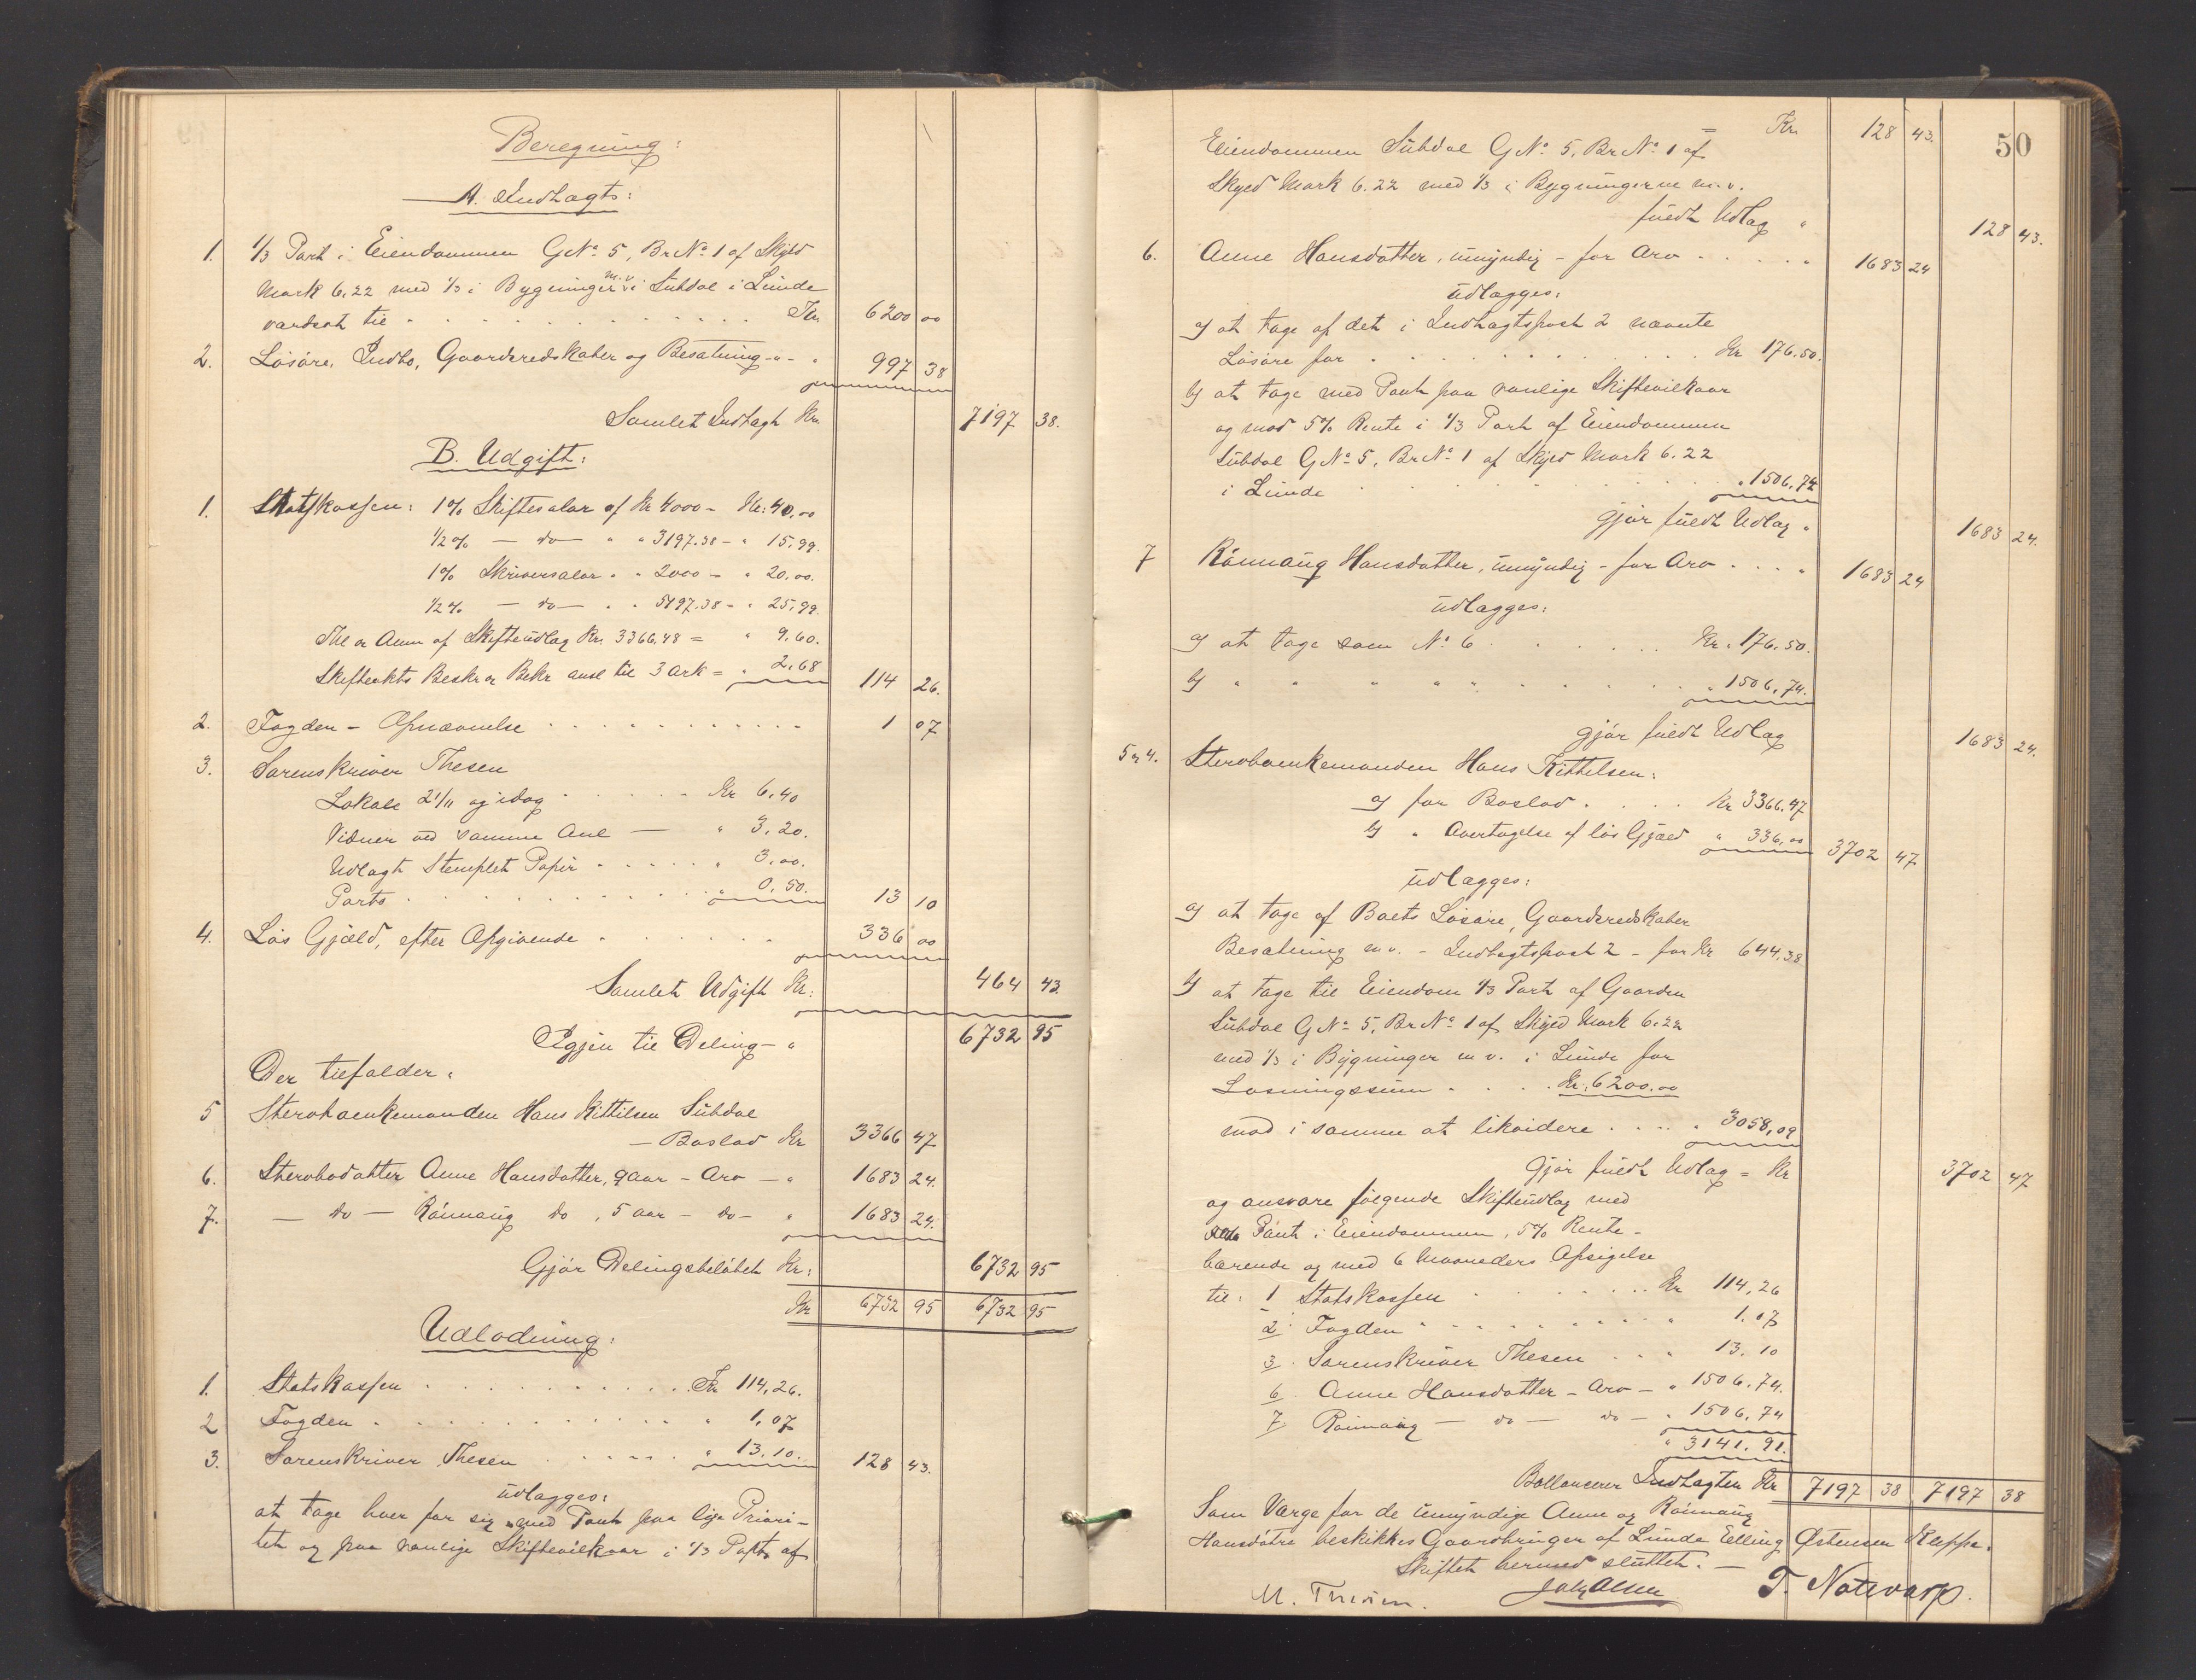 Beregning:
A. Indtægt:
1. 1/3 Part i Eiendommen GNo 5, BrNo 1 af Skyld
Mark 6,22 med 1/3 i Bygninger m.v. i Subdal i Lunde
værdsat til . . . . Kr. 6200 00
2. Løsøre, Indbo, Gaardsredskaber og Besætning - " - " 997 38
Samlet Indtægt Kr. 7197 38.
B. Udgift:
1. Statskassen: 1% Skiftesalær af Kr 4000 - Kr: 40,00
1/2% — do — " " 3197.38 - " 15,99.
1% Skriversalær " " 2000 - " 20,00.
1/2% — do — " " 5197.38 = " 25,99.
Thl a Anm af Skifteudlæg Kr. 3366,48 = " 9,60.
Skifteakts Beskr a Bekr ansl til 3 Ark = " 2,68 114 26.
2. Fogden - Opnævnelse . . . . 1 07
3. Sorenskriver Thesen
Lokale 21/11 og idag . . . . Kr 6,40
Vidner ved samme Anl — " 3,20.
Udlagt Stemplet Papir . . . . " 3,00.
Porto . . . . " 0,50. 13 10
4. Løs Gjæld, efter Opgivende . . . . 336 00
Samlet Udgift Kr: 464 43.
Igjen til Deling - " 6732 95
Der tilfalder:
5 Stervboenkemanden Hans Kittilsen Subdal
— Boslod Kr 3366 47
6. Stervbodatter Anne Hansdatter, 9 aar - Arv — " 1683 24.
7. — do — Rønnaug do, 5 aar - do - " 1683 24.
Gjør Delingsbeløbet Kr: 6732 95
Kr 6732 95 6732 95
Udlodning:
1. Statskassen . . . . Kr 114,26.
2 Fogden . . . . " 1,07
3. Sorenskriver Thesen . . . . " 13,10. 128 43.
udlægges:
at tage hver for sig med Pant paa lige Priori-
tet og paa vanlige Skiftevilkaar i 1/3 Part af
50
Kr. 128 43.
Eiendommen Subdal GNo 5, BrNo 1 af
Skyld Mark 6.22 med 1/3 i Bygningerne m.v.
fuldt Udlæg " 128 43.
6. Anne Hansdatter, umyndig - for Arv . . . . " 1683 24
udlægges:
a) at tage af det i Indtægtspost 2 nævnte
Løsøre for . . . . Kr 176.50.
b) at tage med Pant paa vanlige Skiftevilkaar
og mod 5% Rente i 1/3 Part af Eiendommen
Subdal GNo 5, BrNo 1 af Skyld Mark 6.22
i Lunde . . . . " 1506,74
gjør fuldt Udlæg " 1683 24.
7 Rønnaug Hansdatter, umyndig - for Arv . . . . " 1683 24
udlægges:
a) at tage som No 6 . . . . Kr. 176.50.
b) " " " " " . . . . " 1506,74.
gjør fuldt Udlæg 1683 24.
5 & 4. Stervboenkemanden Hans Kittelsen:
a) for Boslod . . . . Kr 3366.47
b) " Overtagelse af løs Gjæld " 336,00 3702 47
udlægges:
a) at tage af Boets Løsøre, Gaardsredskaber
Besætning m.v. - Indtægtspost 2 - for Kr 644,38
b) at tage til Eiendom 1/3 Part af Gaarden
Subdal GNo 5, BrNo 1 af Skyld Mark 6.22
med 1/3 i Bygninger m v. i Lunde for
Løsningssum . . . . Kr. 6200.00
mod i samme at likvidere . . . . " 3058,09
Gjør fuldt Udlæg = Kr 3702 47
og ansvare følgende Skifteudlæg med
Pant i Eiendommen, 5% Rente-
bærende og med 6 Maaneders Opsigelse
til: 1 Statskassen . . . . Kr 114,26
2. Fogden . . . . " 1.07
3. Sorenskriver Thesen . . . . " 13.10
6. Anne Hansdatter - Arv — " 1506.74.
7. Rønnaug — do — do — " 1506.74
" 3141.91.
Ballancerer Indtægten Kr 7197 38 7197 38
Som Værge for de umyndige Anne og Rønnaug
Hansdøtre beskikkes Gaardbruger af Lunde Elling Østensen Kleppe.
Skiftet hermed sluttet. —
T. Notevarp.